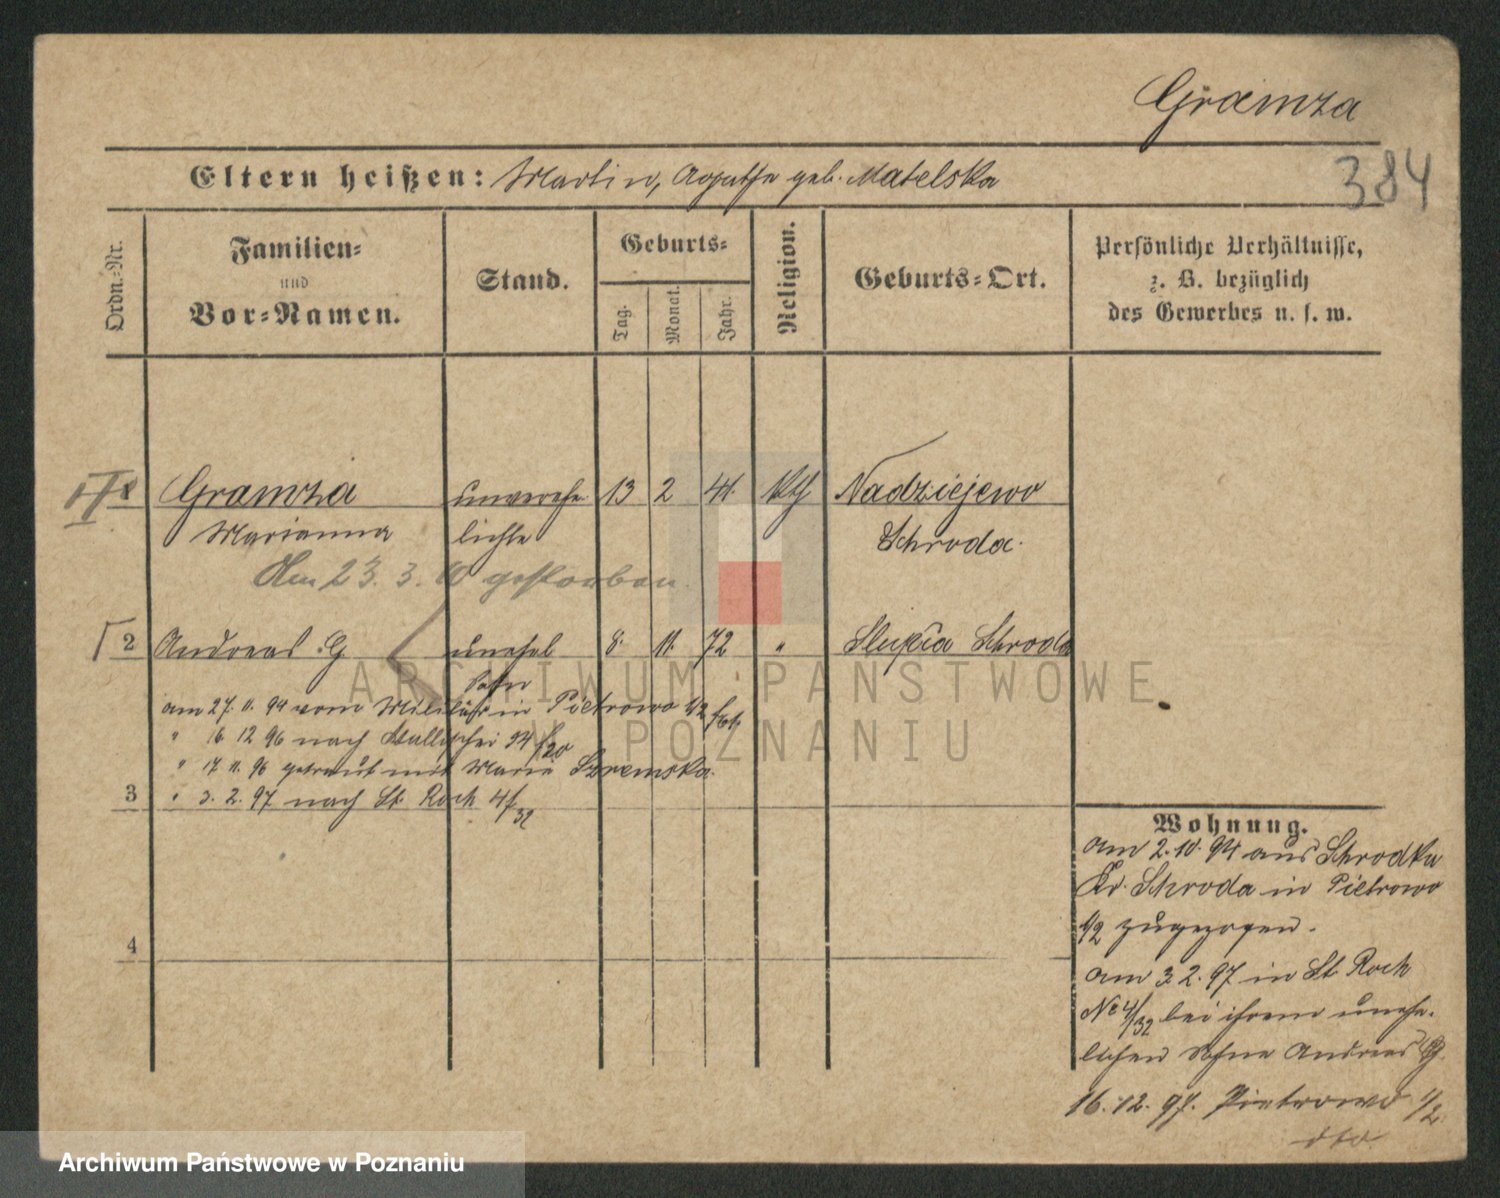 Gramza
384
Eltern heißen: Martin, Agathe geb. Matelska
Ordn.-Nr.
Familien-
und
Vor-Namen.
Stand.
Geburts-
Tag.
Monat.
Jahr.
Religion.
Geburts-Ort.
Persönliche Verhältnisse,
z. B. bezüglich
des Gewerbes u. s. w.
Gramza unverehe 13 2 41. kth Nadziejewo
Marianna lichte Schroda.
Am 23. 3. gestorben.
2 Andreas G unehel 8. 11. 72 " Slupia Schroda
Sohn
am 27. 11. 94 vom Militär in Pietrowo 1/2
" 16 12 96 nach 94/20
" 17 11. 96 getraut mit Marie Szremska.
3 " 3. 2. 97 nach St. Roch 4/32
4
Wohnung.
am 2. 10. 94 aus Schrodka
Kr. Schroda in Pietrowo
1/2 zugezogen.
am 3. 2. 97 in St. Roch
No 4/32 bei ihrem unehe-
lichen Sohne Andreas G.
16. 12. 97. Pietrowo 1/2
dto.
ARCHIWUM PAŃSTWOWE
W POZNANIU
Archiwum Państwowe w Poznaniu